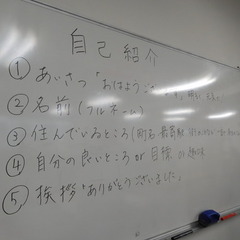 自己紹介
① あいさつ「おはようご
② 名前(フルネーム)
③ 住んでいるところ(
④ 自分の良いところか目標
⑤ 挨拶「ありがとうございました」